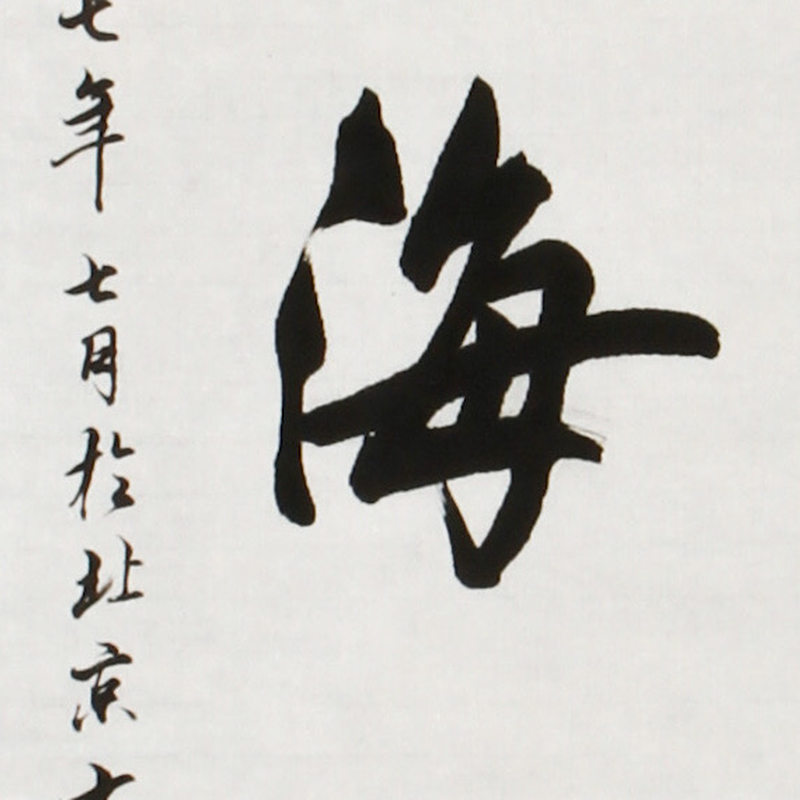 海
七年七月於北京